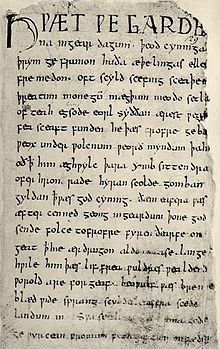 HǷÆT ǷE GARDE
na ingear dagum. þeod cyninga
þrym ge frunon huða æþelingas elle
fremedon. oft scyld scefing sceaþe
þreatum monegū mægþum meodo setla
of teah egsode eorl syððan ærest ƿea
fea sceaft funden he þæs frofre geba
ƿeox under ƿolcnum ƿeorð myndum þah
oð ꝥ him æghƿylc þara ymb sittendra
ofer hron rade hyran scolde gomban
gyldan ꝥ ƿæs god cyning. ðæm eafera ƿæs
æfter cenned geong ingeardum þone god
sende folce tofrofre fyren ðearfe on
geat ꝥ hie ær drugon aldor ase. lange
hƿile him þæs lif frea ƿuldres ƿealdend
ƿorold are for geaf. beoƿulf ƿæs breme
blæd ƿide sprang scyldes eafera scede
landum in. Sƿa sceal uma gode
ge ƿyrcean fromum feoh giftum